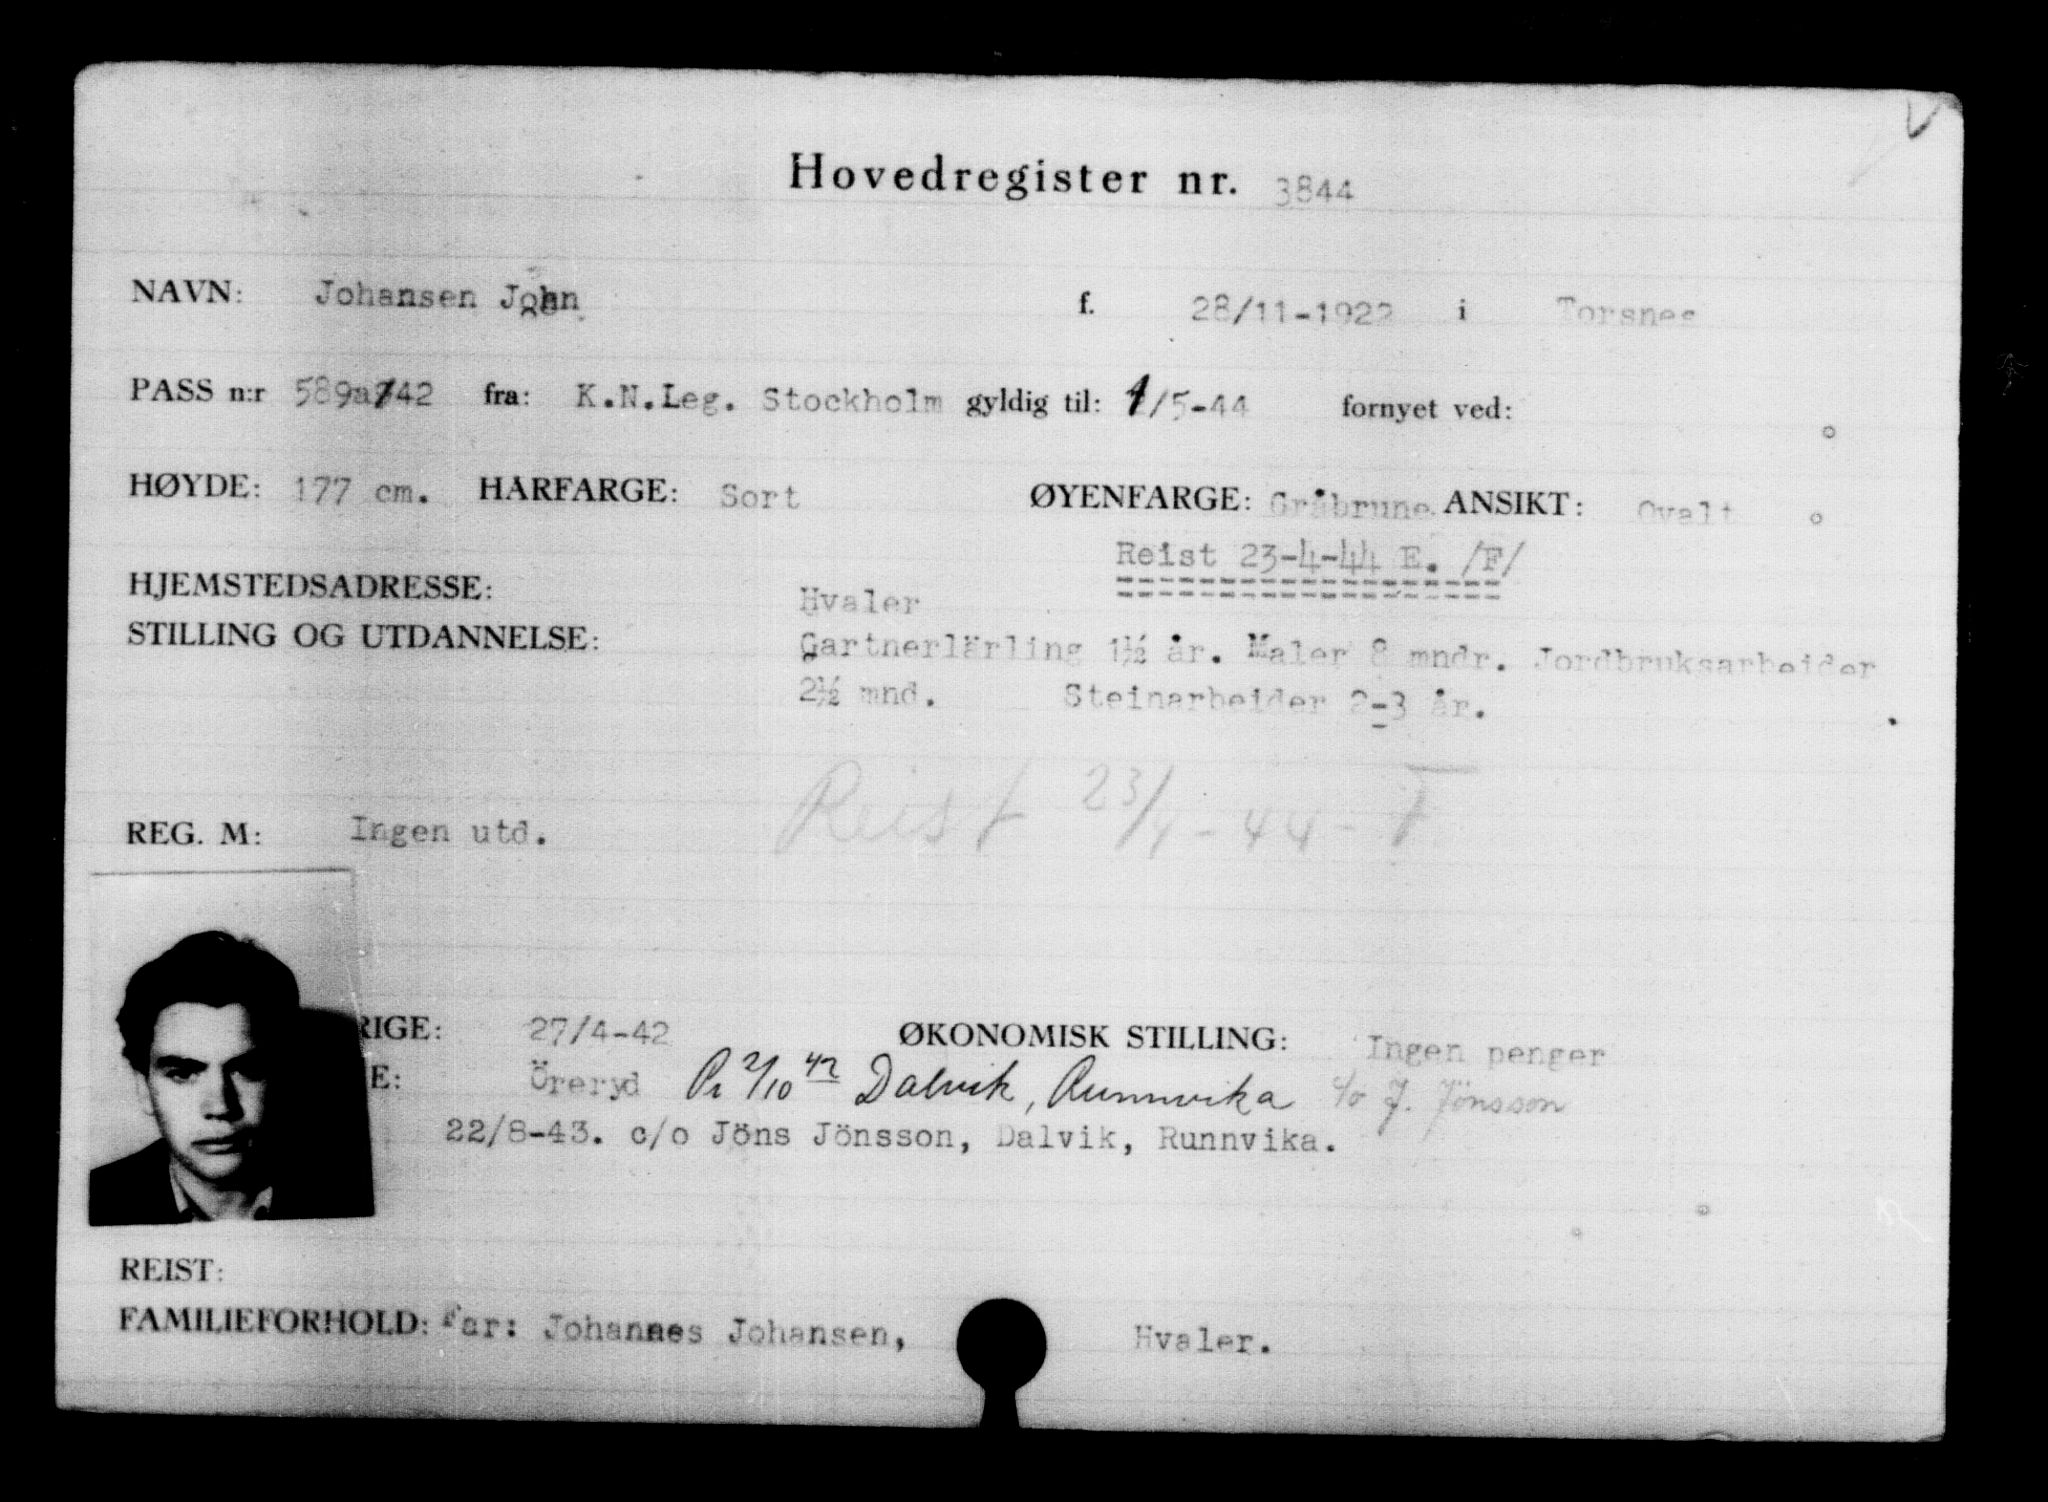 Hovedregister nr. 3844
NAVN: Johansen John f. 28/11-1922 i Torsnes
PASS n:r 589a/42 fra: K.N.Leg. Stockholm gyldig til: 1/5-44 fornyet ved:
HØYDE: 177 cm. HÅRFARGE: Sort ØYENFARGE: Gråbrune. ANSIKT: Ovalt
Reist 23-4-44 E. /F/
HJEMSTEDSADRESSE: Hvaler
STILLING OG UTDANNELSE: Gartnerlärling 1½ år. Maler 8 mndr. Jordbruksarbeider
2½ mnd. Steinarbeider 2-3 år.
Reist 23/4-44-F
REG. M: Ingen utd.
RIGE: 27/4-42 ØKONOMISK STILLING: Ingen penger
E: Öreryd Pr 2/10 42 Dalvik, Runnvika c/o J. Jönsson
22/8-43. c/o Jöns Jönsson, Dalvik, Runnvika.
REIST:
FAMILIEFORHOLD: Far: Johannes Johansen, Hvaler.